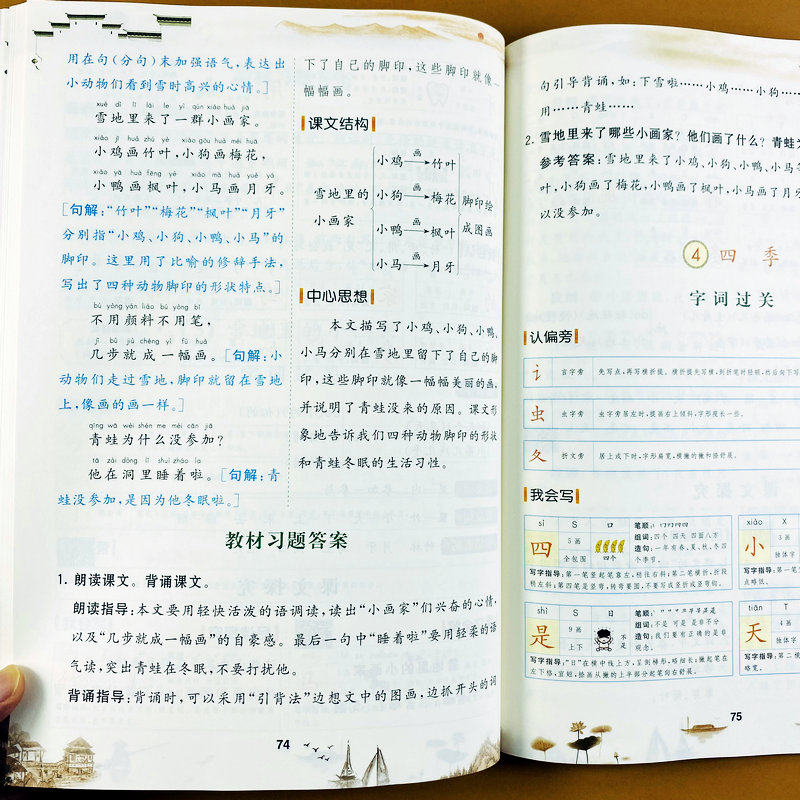 用在句(分句)末加强语气,表达出
小动物们看到雪时高兴的心情。]
xuě dì lǐ lái le yì qún xiǎo huà jiā
雪地里来了一群小画家。
xiǎo jī huà zhú yè xiǎo gǒu huà méi huā
小鸡画竹叶,小狗画梅花,
xiǎo yā huà fēng yè xiǎo mǎ huà yuè yá
小鸭画枫叶,小马画月牙。
[句解:“竹叶”“梅花”“枫叶”“月牙”
分别指“小鸡、小狗、小鸭、小马”的
脚印。这里用了比喻的修辞手法,
写出了四种动物脚印的形状特点。]
bú yòng yán liào bú yòng bǐ
不用颜料不用笔,
jǐ bù jiù chéng yì fú huà
几步就成一幅画。[句解:小
动物们走过雪地,脚印就留在雪地
上,像画的画一样。]
qīng wā wèi shén me méi cān jiā
青蛙为什么没参加?
tā zài dòng lǐ shuì zháo la
他在洞里睡着啦。[句解:青
蛙没参加,是因为他冬眠啦。]
下了自己的脚印,这些脚印就像一
幅幅画。
课文结构
雪地里的
小画家
小鸡 画 竹叶
小狗 画 梅花
小鸭 画 枫叶
小马 画 月牙
脚印绘
成图画
中心思想
本文描写了小鸡、小狗、小鸭、
小马分别在雪地里留下了自己的脚
印,这些脚印就像一幅幅美丽的画,
并说明了青蛙没来的原因。课文形
象地告诉我们四种动物脚印的形状
和青蛙冬眠的生活习性。
教材习题答案
1. 朗读课文。背诵课文。
朗读指导:本文要用轻快活泼的语调读,读出“小画家”们兴奋的心情,
以及“几步就成一幅画”的自豪感。最后一句中“睡着啦”要用轻柔的语
气读,突出青蛙在冬眠,不要打扰他。
背诵指导:背诵时,可以采用“引背法”边想文中的图画,边抓开头的词
74
句引导背诵,如:下雪啦……小鸡……小狗……
用……青蛙……
2. 雪地里来了哪些小画家?他们画了什么?青蛙为
参考答案:雪地里来了小鸡、小狗、小鸭、小马等
叶,小狗画了梅花,小鸭画了枫叶,小马画了月牙
以没参加。
4 四 季
字词过关
认偏旁
讠 言字旁 先写点,再写横折提。横折提先写横,到折笔时轻顿,然后向下写
虫 虫字旁 虫字旁居左时,提画右上倾斜,字形瘦长一些。
夂 折文旁 居上或下时,字形扁宽,横撇的撇和捺舒展。
我会写
sì S 囗
四
5画
全包围
四个
笔顺:
组词:四个 四天 四面八方
造句:一年有春、夏、秋、冬四
个季节。
写字指导:第一笔竖起笔靠左,稍往右斜;第二笔横折,折段
稍左斜;第四笔是竖弯,转弯要圆,不要写成竖折或竖弯钩。
xiǎo X
小
3画
独体字
写字指导:第一笔
点略低。
shì S 日
是
9画
上下
不是
笔顺:
组词:不是 可是 是非不分
造句:我们要有正确的是非
观念。
写字指导:“日”在横中线上方,呈倒梯形,略细长;撇起笔在
左下格,宜短,捺画从撇的上半部分起笔向右舒展。
tiān T
天
4画
独体字
写字指导:第二横
略宽。
75